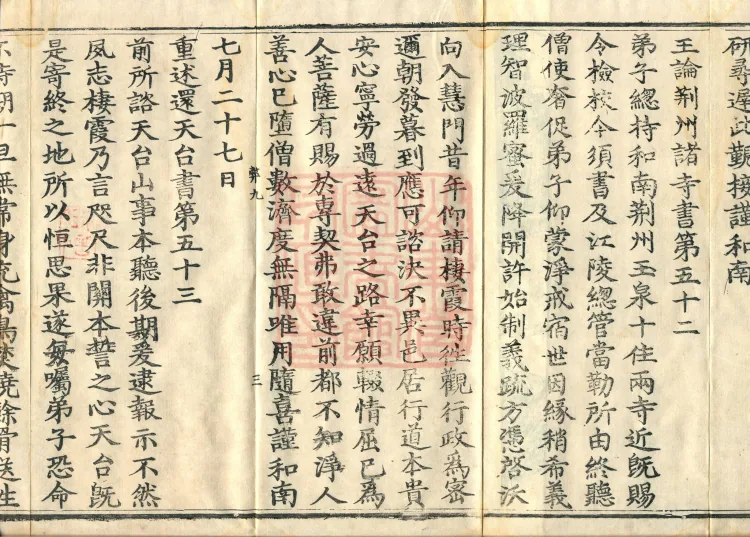 研尋遲此覲接謹和南
王論荊州諸寺書第五十二
弟子總持和南荊州玉泉十住兩寺近既賜
令檢校今須書及江陵總管當勤所由終聽
僧使奢促弟子仰蒙淨戒宿世因緣稍希義
理智波羅蜜爰降開許始制義疏方憑啓沃
向入慧門昔年仰請棲霞時徃觀行政為密
邇朝發暮到應可諮決不異邑居行道本貴
安心寧勞過遠天台之路幸願輟情屈已為
人菩薩有賜於專契弗敢違前都不知淨人
善心已墮僧數濟度無隔唯用隨喜謹和南
九 三
七月二十七日
重述還天台書第五十三
前所諮天台山事本聽後期爰逮報示不然
夙志棲霞乃言咫尺非關本誓之心天台既
是寄終之地所以恒思果遂每囑弟子恐命
不待期一旦無常身充禽鳥焚燒餘骨送